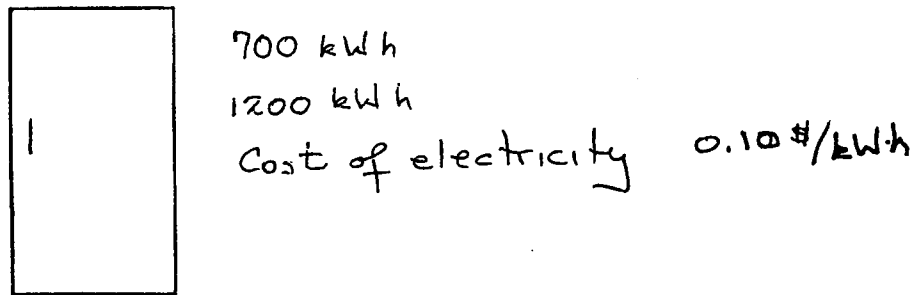 700 kWh
1200 kWh
Cost of electricity 0.10 $/kW·h